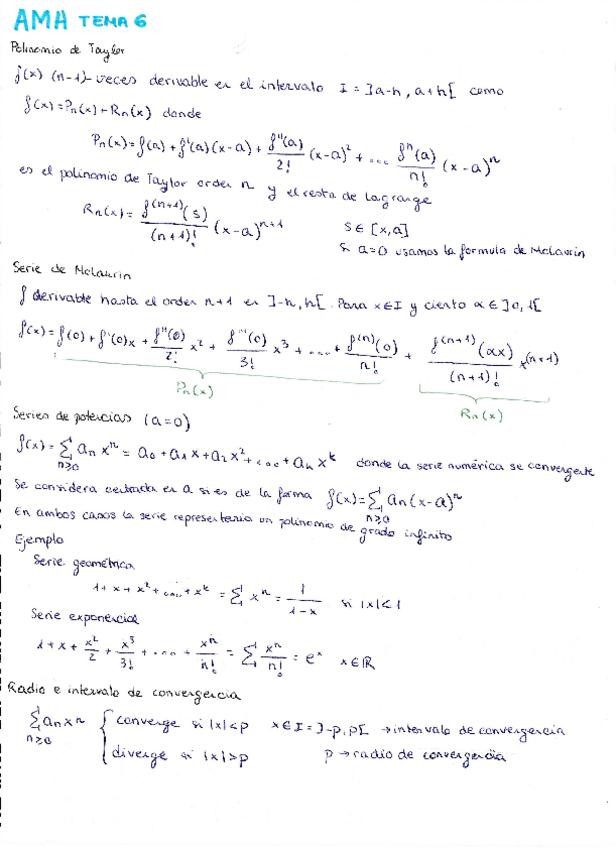 AMA TEMA 6
Polinomio de Taylor
f(x) (n-1)-veces derivable en el intervalo I = ]a-h, a+h[ como
f(x) = Pn(x) + Rn(x) donde
Pn(x) = f(a) + f'(a)(x-a) + f''(a)/2! (x-a)² + .... fⁿ(a)/n! (x-a)ⁿ
es el polinomio de Taylor orden n y el resto de Lagrange
Rn(x) = f⁽ⁿ⁺¹⁾(s)/(n+1)! (x-a)ⁿ⁺¹ s ∈ [x,a]
Si a=0 usamos la formula de McLaurin
Serie de McLaurin
f derivable hasta el orden n+1 en ]-h, h[. Para x∈I y cierto α ∈ ]0, 1[
f(x) = f(0) + f'(0)x + f''(0)/2! x² + f'''(0)/3! x³ + .... + f⁽ⁿ⁾(0)/n! + f⁽ⁿ⁺¹⁾(αx)/(n+1)! x⁽ⁿ⁺¹⁾
Pn(x) Rn(x)
Series de potencias (a=0)
f(x) = ∑ n≥0 an xⁿ = a0 + a1x + a2x² + .... + ak xᵏ donde la serie numérica se convergente
Se considera centrada en a si es de la forma f(x) = ∑ n≥0 an(x-a)ⁿ
En ambos casos la serie representaria un polinomio de grado infinito
Ejemplo
Serie geométrica
1 + x + x² + .... + xᵏ = ∑ xⁿ = 1/(1-x) si |x|<1
Serie exponencial
1 + x + x²/2 + x³/3! + .... + xⁿ/n! = ∑ xⁿ/n! = eˣ x∈ℝ
Radio e intervalo de convergencia
∑ n≥0 an xⁿ { converge si |x|<p x∈I = ]-p, p[ → intervalo de convergencia
diverge si |x|>p p → radio de convergencia